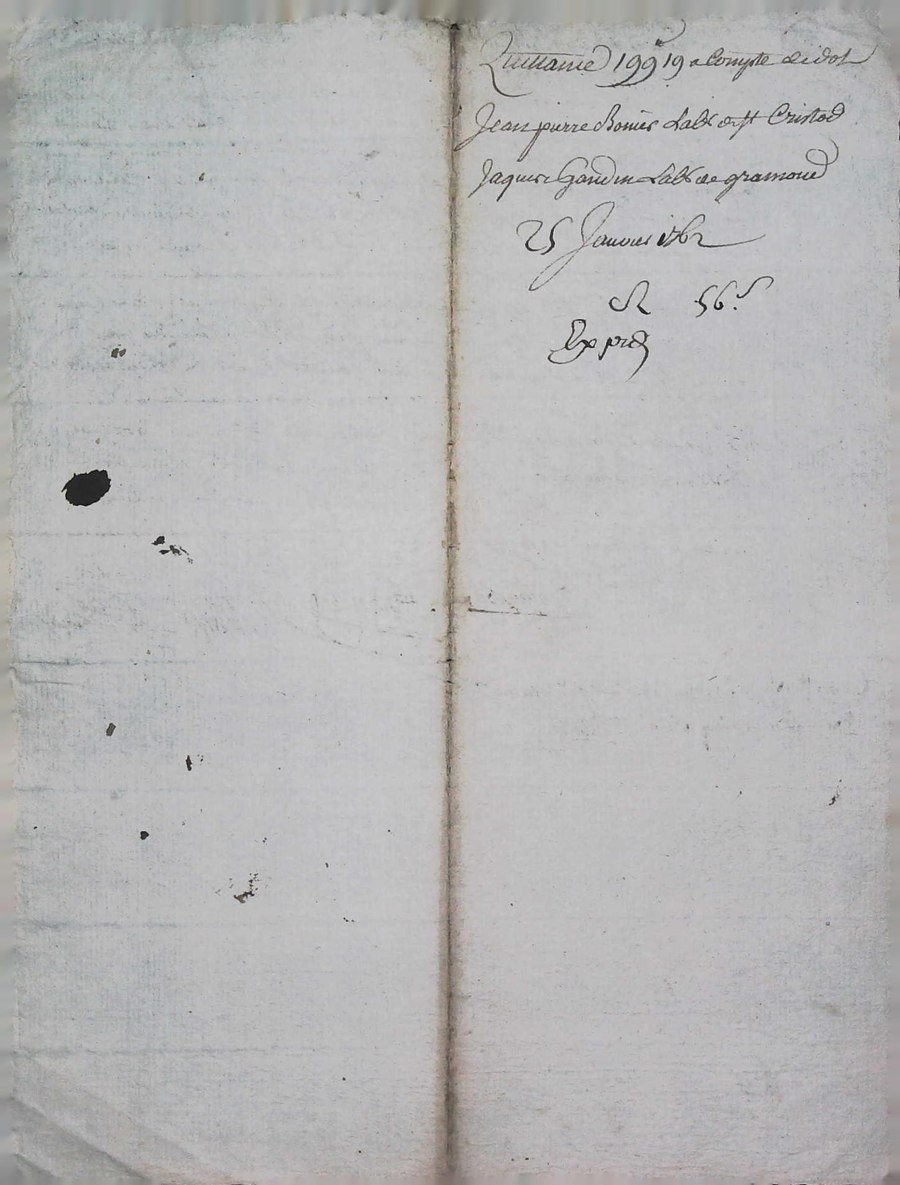 Quittance 199ᵗᵗ 19 a Compte de dot
Jean pierre Bonier Labr de st Cristod
Jaques Gaudin Labr de gramond
25 Janvier 1762
56 s
Ex pié